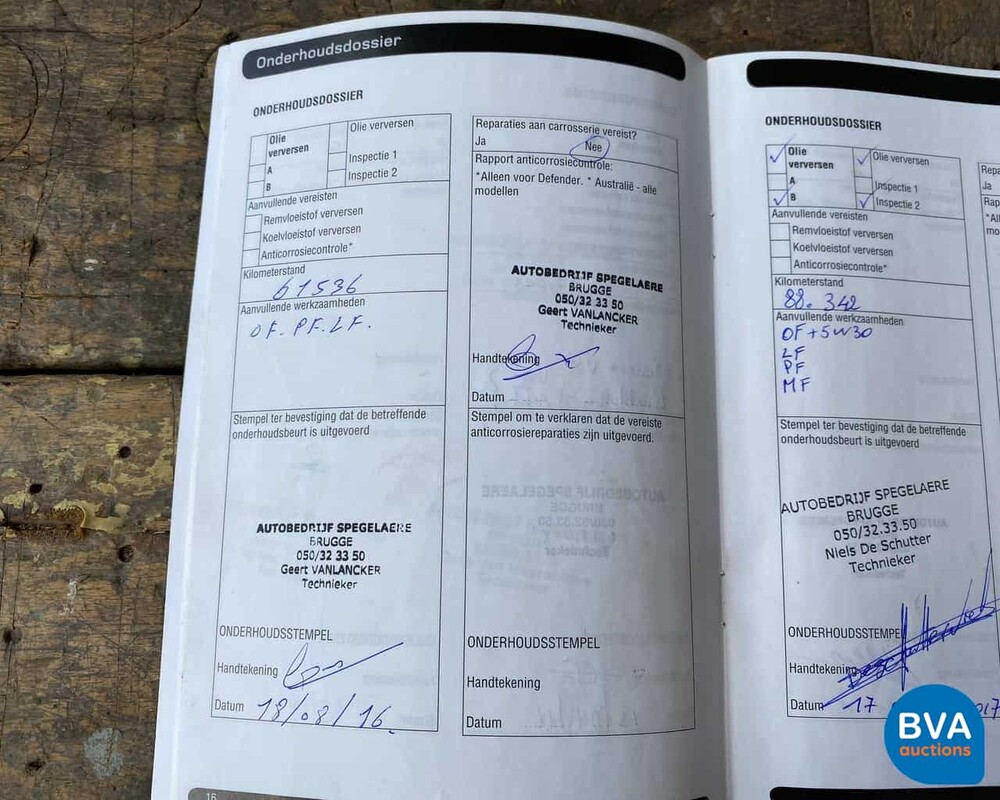 Onderhoudsdossier
ONDERHOUDSDOSSIER
Olie verversen
A
B
Olie verversen
Inspectie 1
Inspectie 2
Aanvullende vereisten
Remvloeistof verversen
Koelvloeistof verversen
Anticorrosiecontrole*
Kilometerstand
61536
Aanvullende werkzaamheden
OF. PF. LF.
Stempel ter bevestiging dat de betreffende
onderhoudsbeurt is uitgevoerd
AUTOBEDRIJF SPEGELAERE
BRUGGE
050/32 33 50
Geert VANLANCKER
Technieker
ONDERHOUDSSTEMPEL
Handtekening
Datum 18/08/16
16
Reparaties aan carrosserie vereist?
Ja Nee
Rapport anticorrosiecontrole:
*Alleen voor Defender. * Australië - alle
modellen
AUTOBEDRIJF SPEGELAERE
BRUGGE
050/32 33 50
Geert VANLANCKER
Technieker
Handtekening
Datum
Stempel om te verklaren dat de vereiste
anticorrosiereparaties zijn uitgevoerd.
ONDERHOUDSSTEMPEL
Handtekening
Datum
ONDERHOUDSDOSSIER
Olie
verversen
A
B
Olie verversen
Inspectie 1
Inspectie 2
Aanvullende vereisten
Remvloeistof verversen
Koelvloeistof verversen
Anticorrosiecontrole*
Kilometerstand
88.342
Aanvullende werkzaamheden
OF + 5W30
LF
PF
MF
Stempel ter bevestiging dat de betreffende
onderhoudsbeurt is uitgevoerd
AUTOBEDRIJF SPEGELAERE
BRUGGE
050/32.33.50
Niels De Schutter
Technieker
ONDERHOUDSSTEMPEL
Handtekening
Datum 17
Ja
BVA
auctions